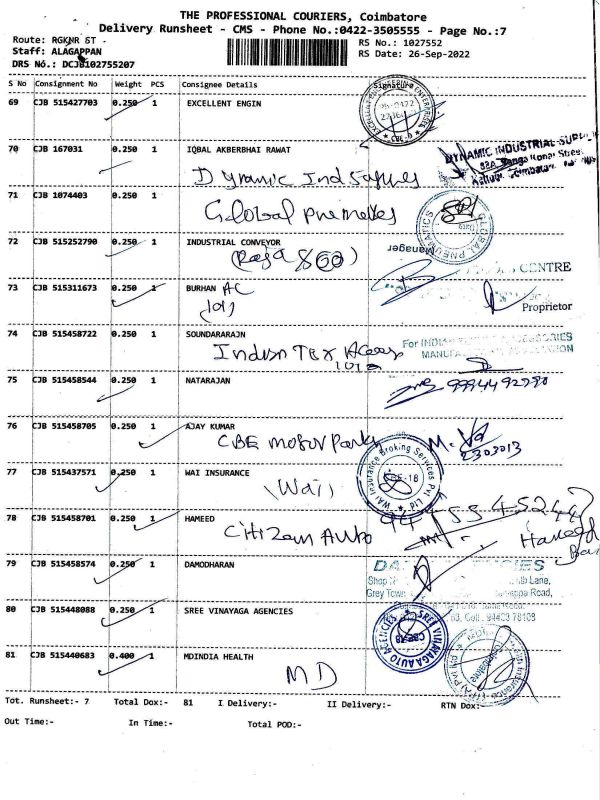 THE PROFESSIONAL COURIERS, Coimbatore
Delivery Runsheet - CMS - Phone No.:0422-3505555 - Page No.:7
Route: RGKNR ST -
RS No.: 1027552
Staff: ALAGAPPAN
RS Date: 26-Sep-2022
DRS No.: DCJB102755207
S No Consignment No Weight PCS Consignee Details Signature
69 CJB 515427703 0.250 1 EXCELLENT ENGIN
70 CJB 167031 0.250 1 IQBAL AKBERBHAI RAWAT
DYNAMIC INDUSTRIAL SUPPLI
Dynamic Ind
71 CJB 1074403 0.250 1
Global
GLOBAL PNEUMATICS
72 CJB 515252790 0.250 1 INDUSTRIAL CONVEYOR
Manager
CENTRE
73 CJB 515311673 0.250 1 BURHAN AC
Proprietor
74 CJB 515458722 0.250 1 SOUNDARARAJN
Indian Tex
For INDIAN
75 CJB 515458544 0.250 1 NATARAJAN
9994492790
76 CJB 515458705 0.250 1 AJAY KUMAR
CBE Motor Parks
2303013
77 CJB 515437571 0.250 1 WAI INSURANCE
(Wai)
WAI Insurance Broking Services Pvt Ltd
78 CJB 515458701 0.250 1 HAMEED
Citizen Auto
Hameed
79 CJB 515458574 0.250 1 DAMODHARAN
Grey Town
Lane,
Road,
80 CJB 515448088 0.250 1 SREE VINAYAGA AGENCIES
SREE VINAYAGA AUTO AGENCIES
81 CJB 515440683 0.400 1 MDINDIA HEALTH
MD
Tot. Runsheet:- 7 Total Dox:- 81 I Delivery:- II Delivery:- RTN Dox:-
Out Time:- In Time:- Total POD:-